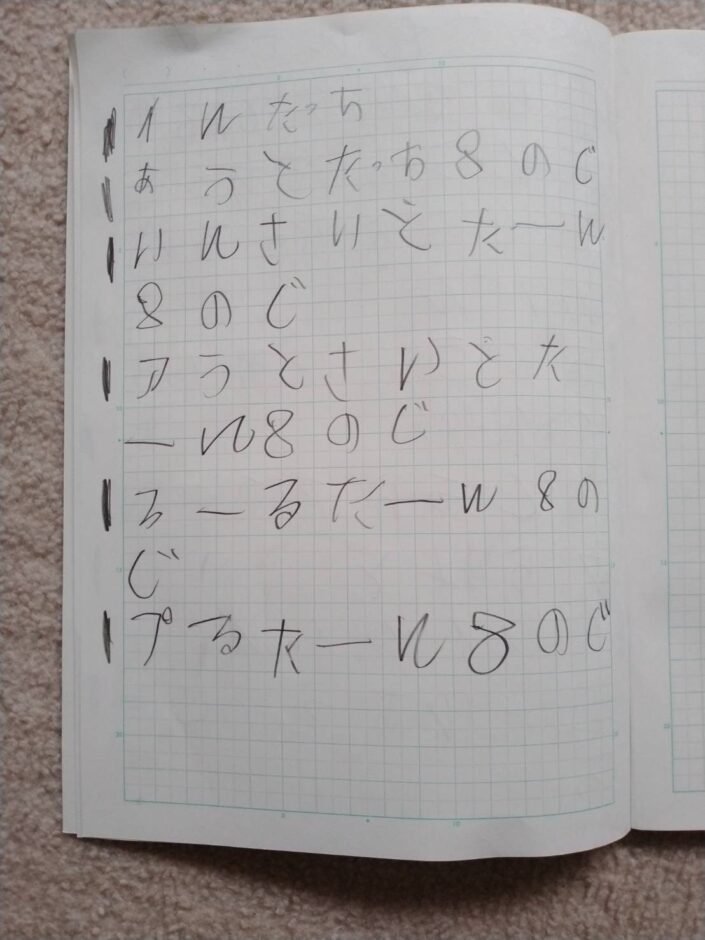 イんたっち
あうとたっち8のじ
いんさいどたーん
8のじ
アうとさいどた
ーん8のじ
ろーるたーん8の
じ
プるたーん8のじ